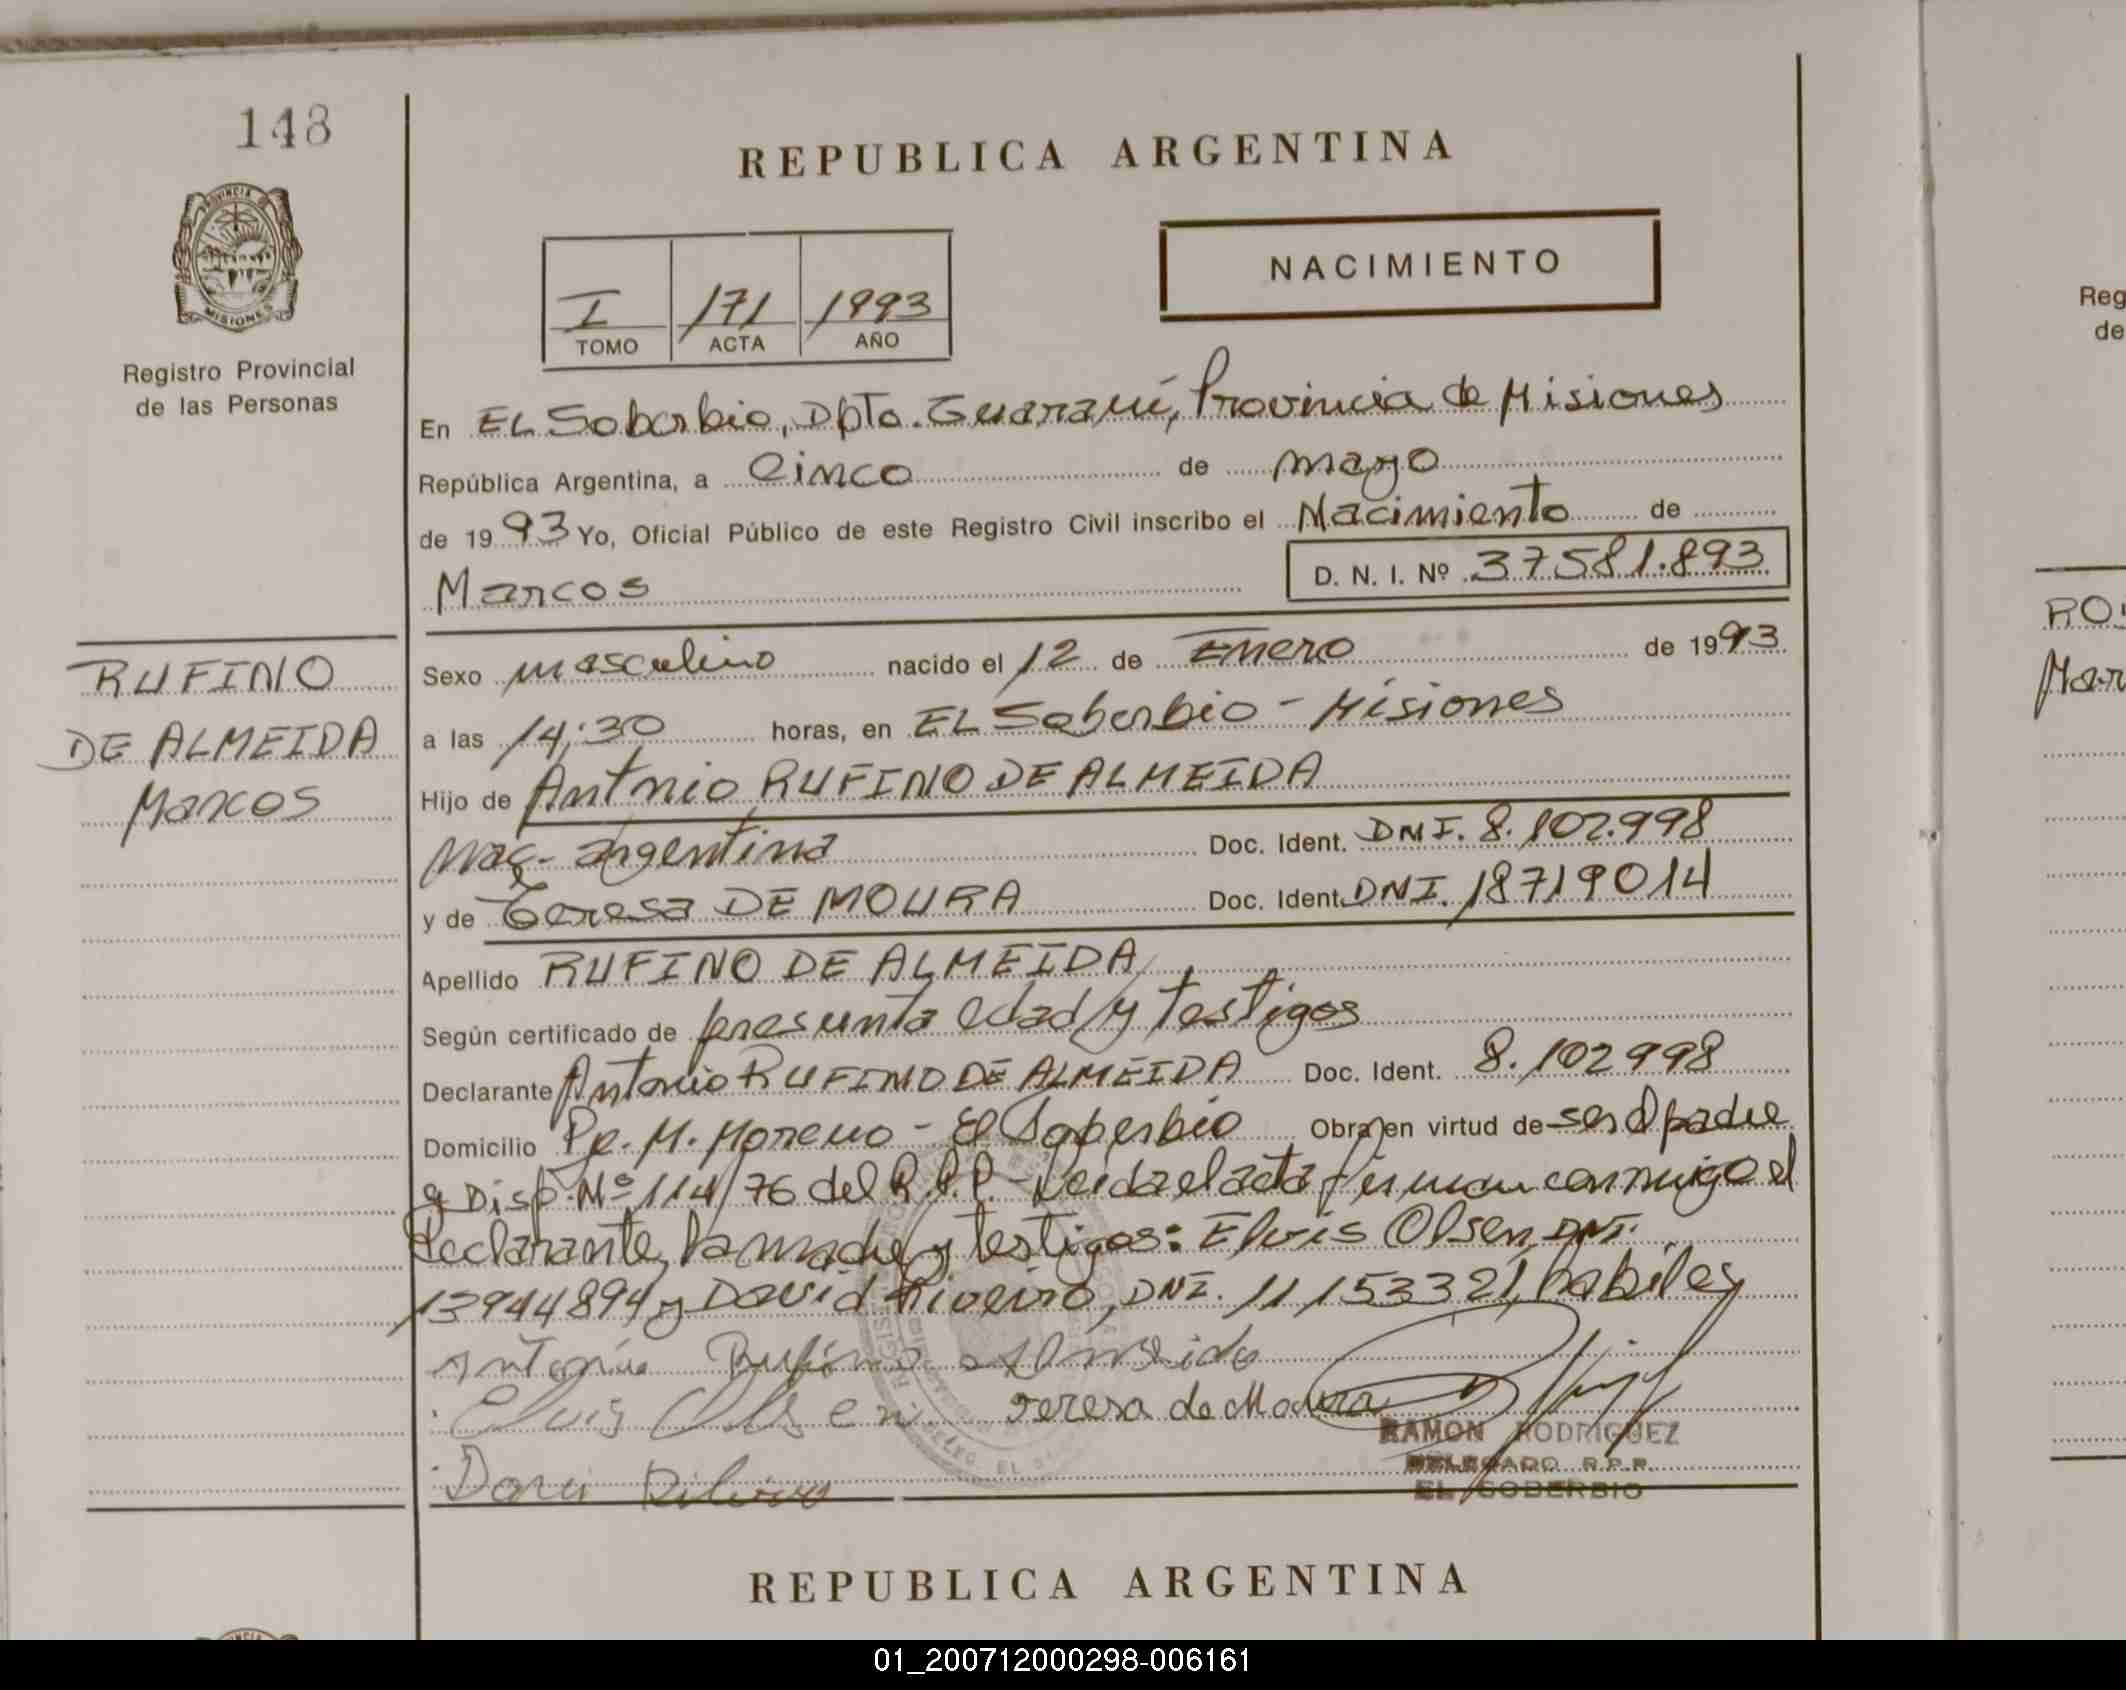 148
PROVINCIA DE
MISIONES
Registro Provincial
de las Personas
RUFINO
DE ALMEIDA
Marcos
REPUBLICA ARGENTINA
I 171 1993
TOMO ACTA AÑO
NACIMIENTO
En EL Soberbio, Dpto. Guaraní, Provincia de Misiones
República Argentina, a Cinco de mayo
de 1993 Yo, Oficial Público de este Registro Civil inscribo el Nacimiento de
Marcos D. N. I. Nº 37581.893
Sexo masculino nacido el 12 de Enero de 1993
a las 14:30 horas, en EL Soberbio - Misiones
Hijo de Antonio RUFINO DE ALMEIDA
Nac. argentina Doc. Ident. DNI. 8.102.998
y de Teresa DE MOURA Doc. Ident. DNI. 18719014
Apellido RUFINO DE ALMEIDA
Según certificado de presunta edad y testigos
Declarante Antonio RUFINO DE ALMEIDA Doc. Ident. 8.102998
Domicilio Pje. M. Moreno - El Soberbio Obra en virtud de ser el padre
y Disp. Nº 114/76 del R.P.P. Leida el acta firman conmigo el
declarante, la madre y testigos: Elvis Olsen, DNI.
13944894 y David Riveiro, DNI. 11153321, habiles
Antonio Rufino Almeida
Elvis Olsen Teresa de Moura
RAMON RODRIGUEZ
DELEGADO R.P.P.
EL SOBERBIO
REPUBLICA ARGENTINA
Reg
de
Mar
01_200712000298-006161